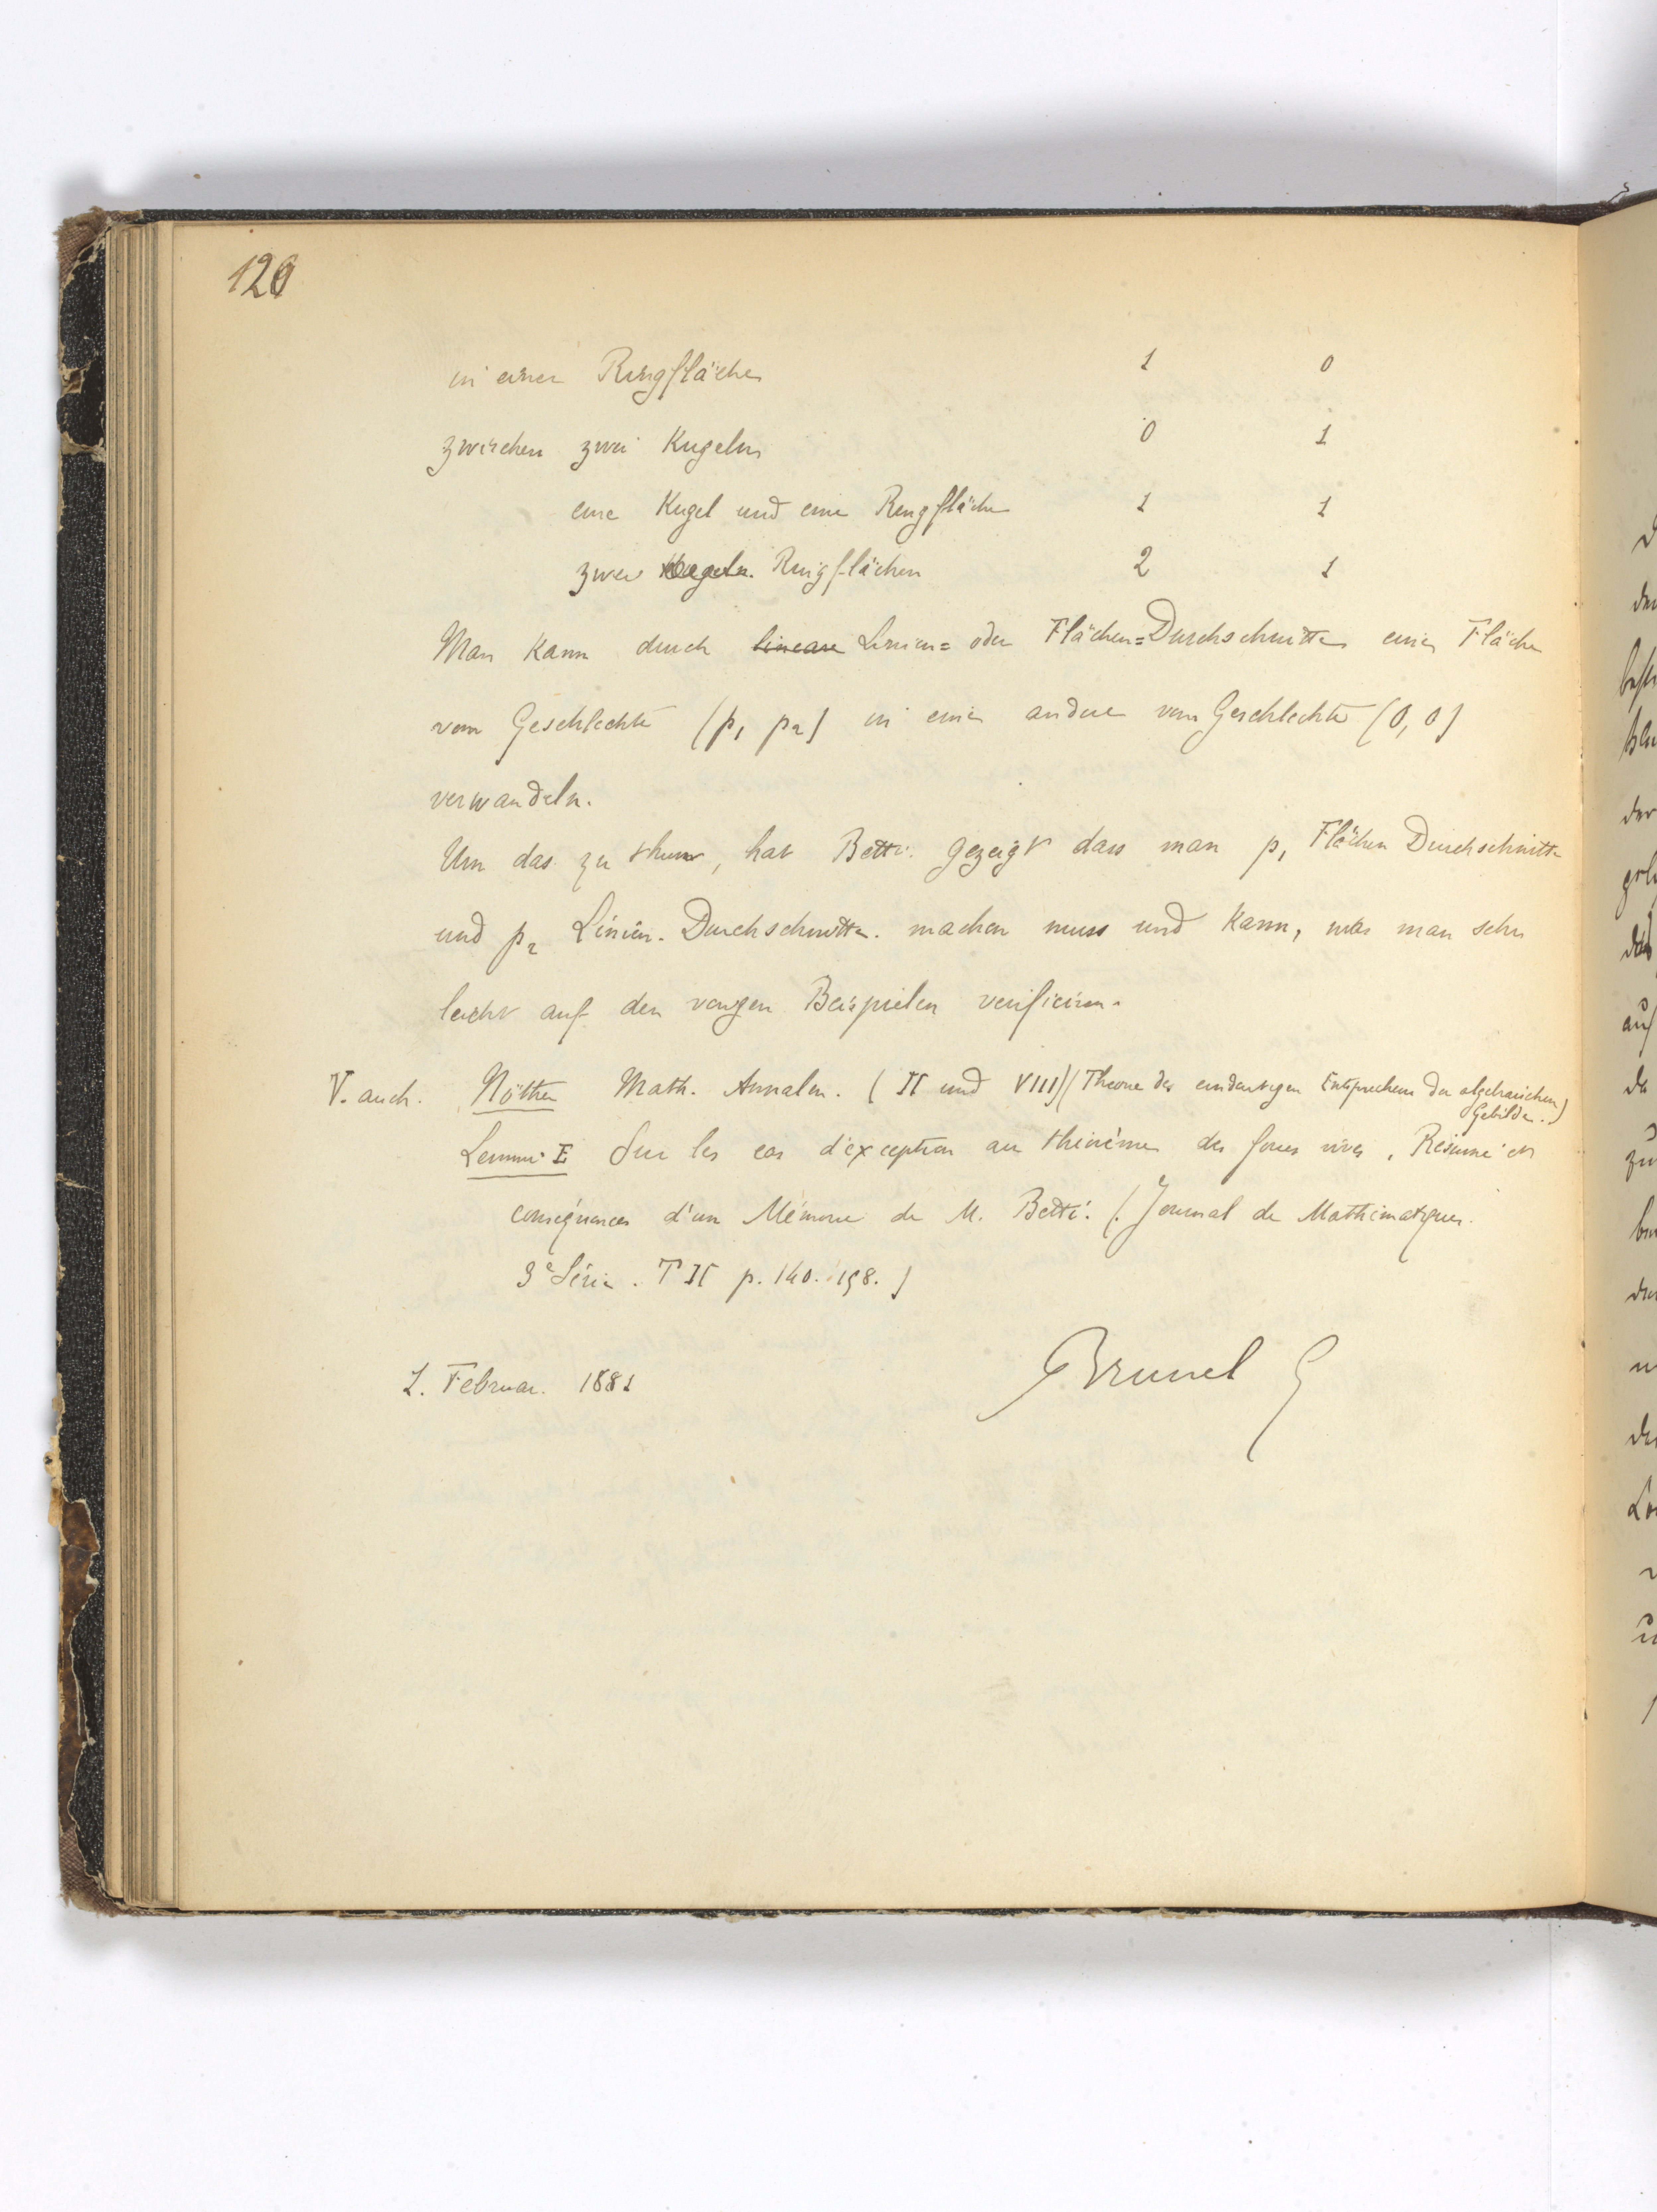 120
in einer Ringfläche 1 0
zwischen zwei Kugeln 0 1
eine Kugel und eine Ringfläche 1 1
zwei Kugeln. Ringflächen 2 1
Man kann durch lineare Linien= oder Flächen=Durchschnitte eine Fläche
vom Geschlechte (p₁ p₂) in eine andere vom Geschlechte (0, 0)
verwandeln.
Um das zu thun, hat Betti gezeigt dass man p₁ Flächen Durchschnitte
und p₂ Linien-Durchschnitte machen muss und kann, was man sehr
leicht auf den vorigen Beispielen verificiren.
V. auch. Nöther Math. Annalen. (II und VIII) (Theorie des eindeutigen Entsprechens der algebraischen
Gebilde.)
Lemmi E Sur les cas d'exception au théorème des forces vives, Résumé et
conséquences d'un Mémoire de M. Betti. (Journal de Mathématiques.
3e Série. T II p. 140. 158.)
1. Februar. 1881
Brunel G